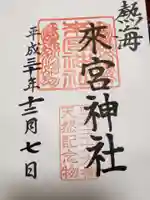 熱海
來宮神社
天然記念物
平成三十年十二月七日